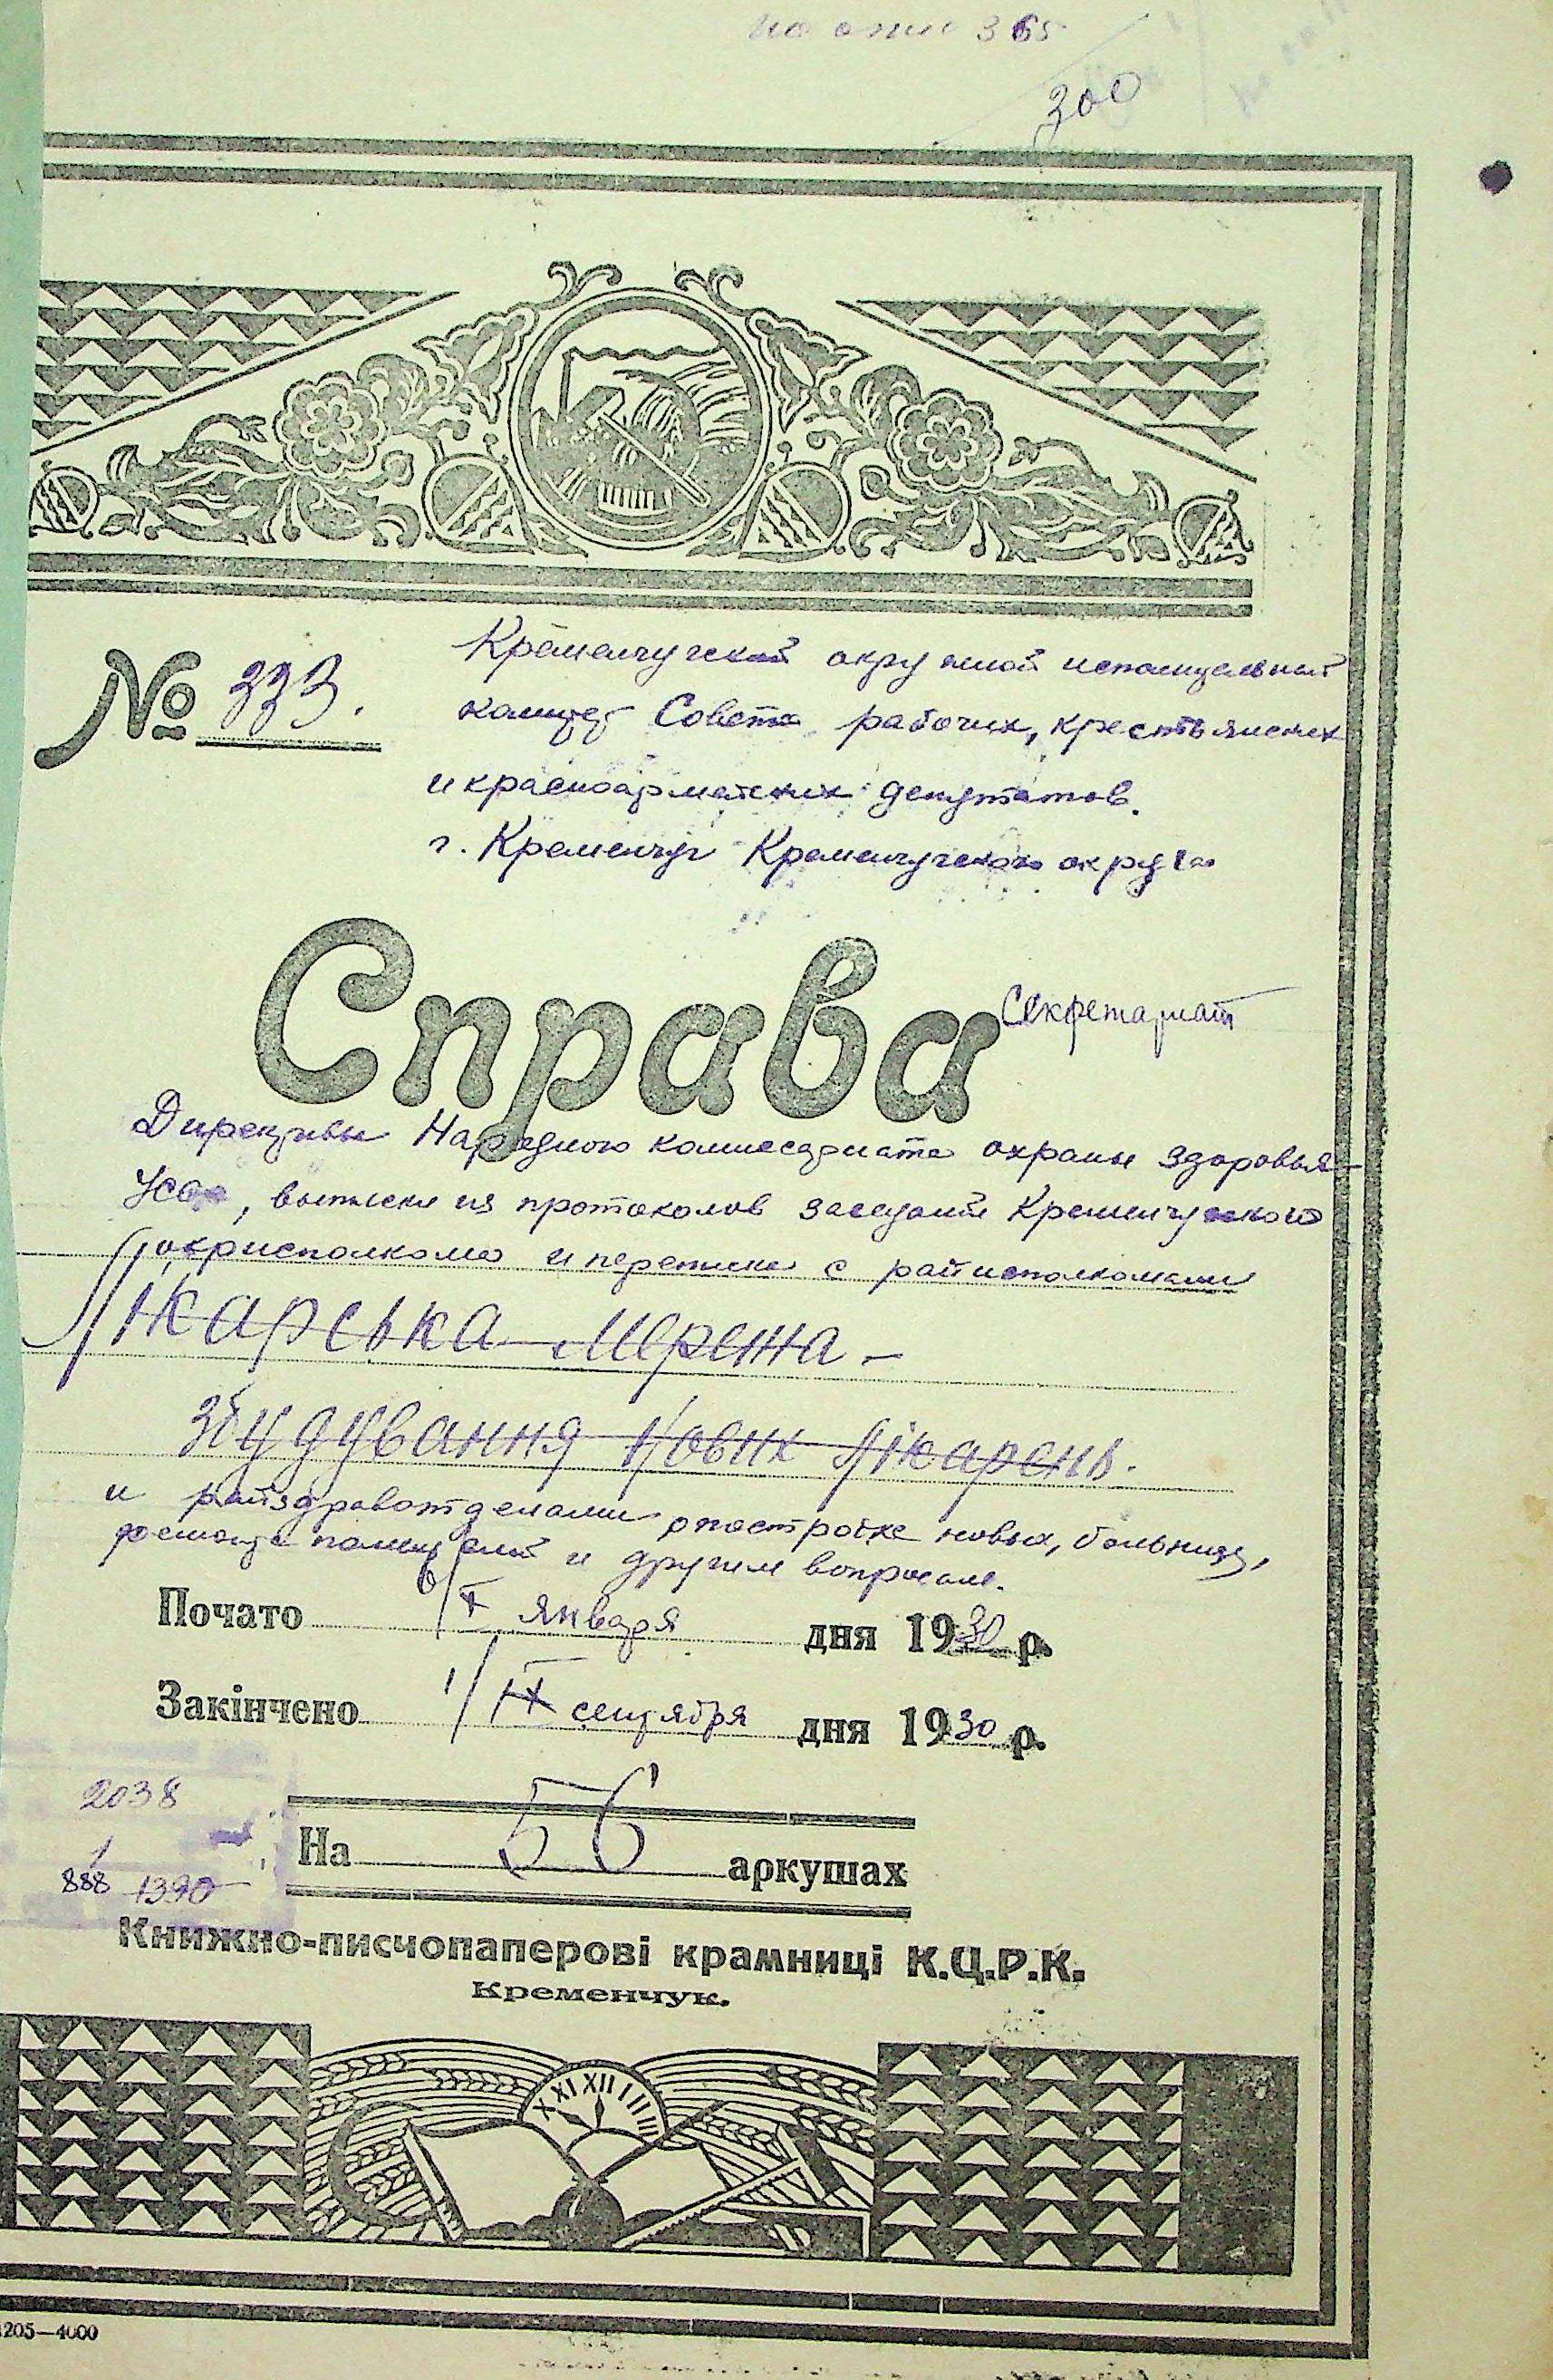 по описи 365
300
№ 333.
Кременчугский окружной исполнительный
комитет Совета рабочих, крестьянских
и красноармейских депутатов.
г. Кременчуг Кременчугского округа
Справа
Секретариат
Директивы Народного комиссариата охраны здоровья
УССР, выписки из протоколов заседаний Кременчугского
окрисполкома и переписка с райисполкомами
Лікарська мережа –
збудування нових лікарень.
и райздравотделами о постройке новых, больниц,
ремонте помещений и другим вопросам.
Почато января дня 1930 р.
Закінчено 1/IX сентября дня 1930 р.
2038
1
888 1390
На 56 аркушах
Книжно-писчопаперові крамниці К.Ц.Р.К.
Кременчук.
X XI XII I II III
1205—4000